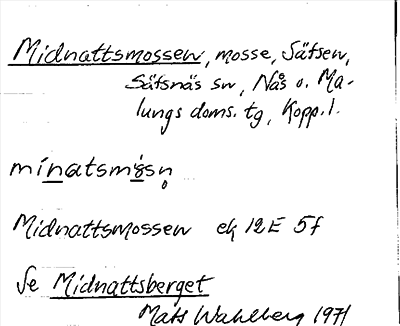 Midnattsmossen, mosse, Säfsen,
Säfsnäs sn, Nås o. Ma-
lungs doms. tg, Kopp. l.
mínatsmåsn̥
Midnattsmossen ek 12E 5f
Se Midnattsberget
Mats Wahlberg 1971